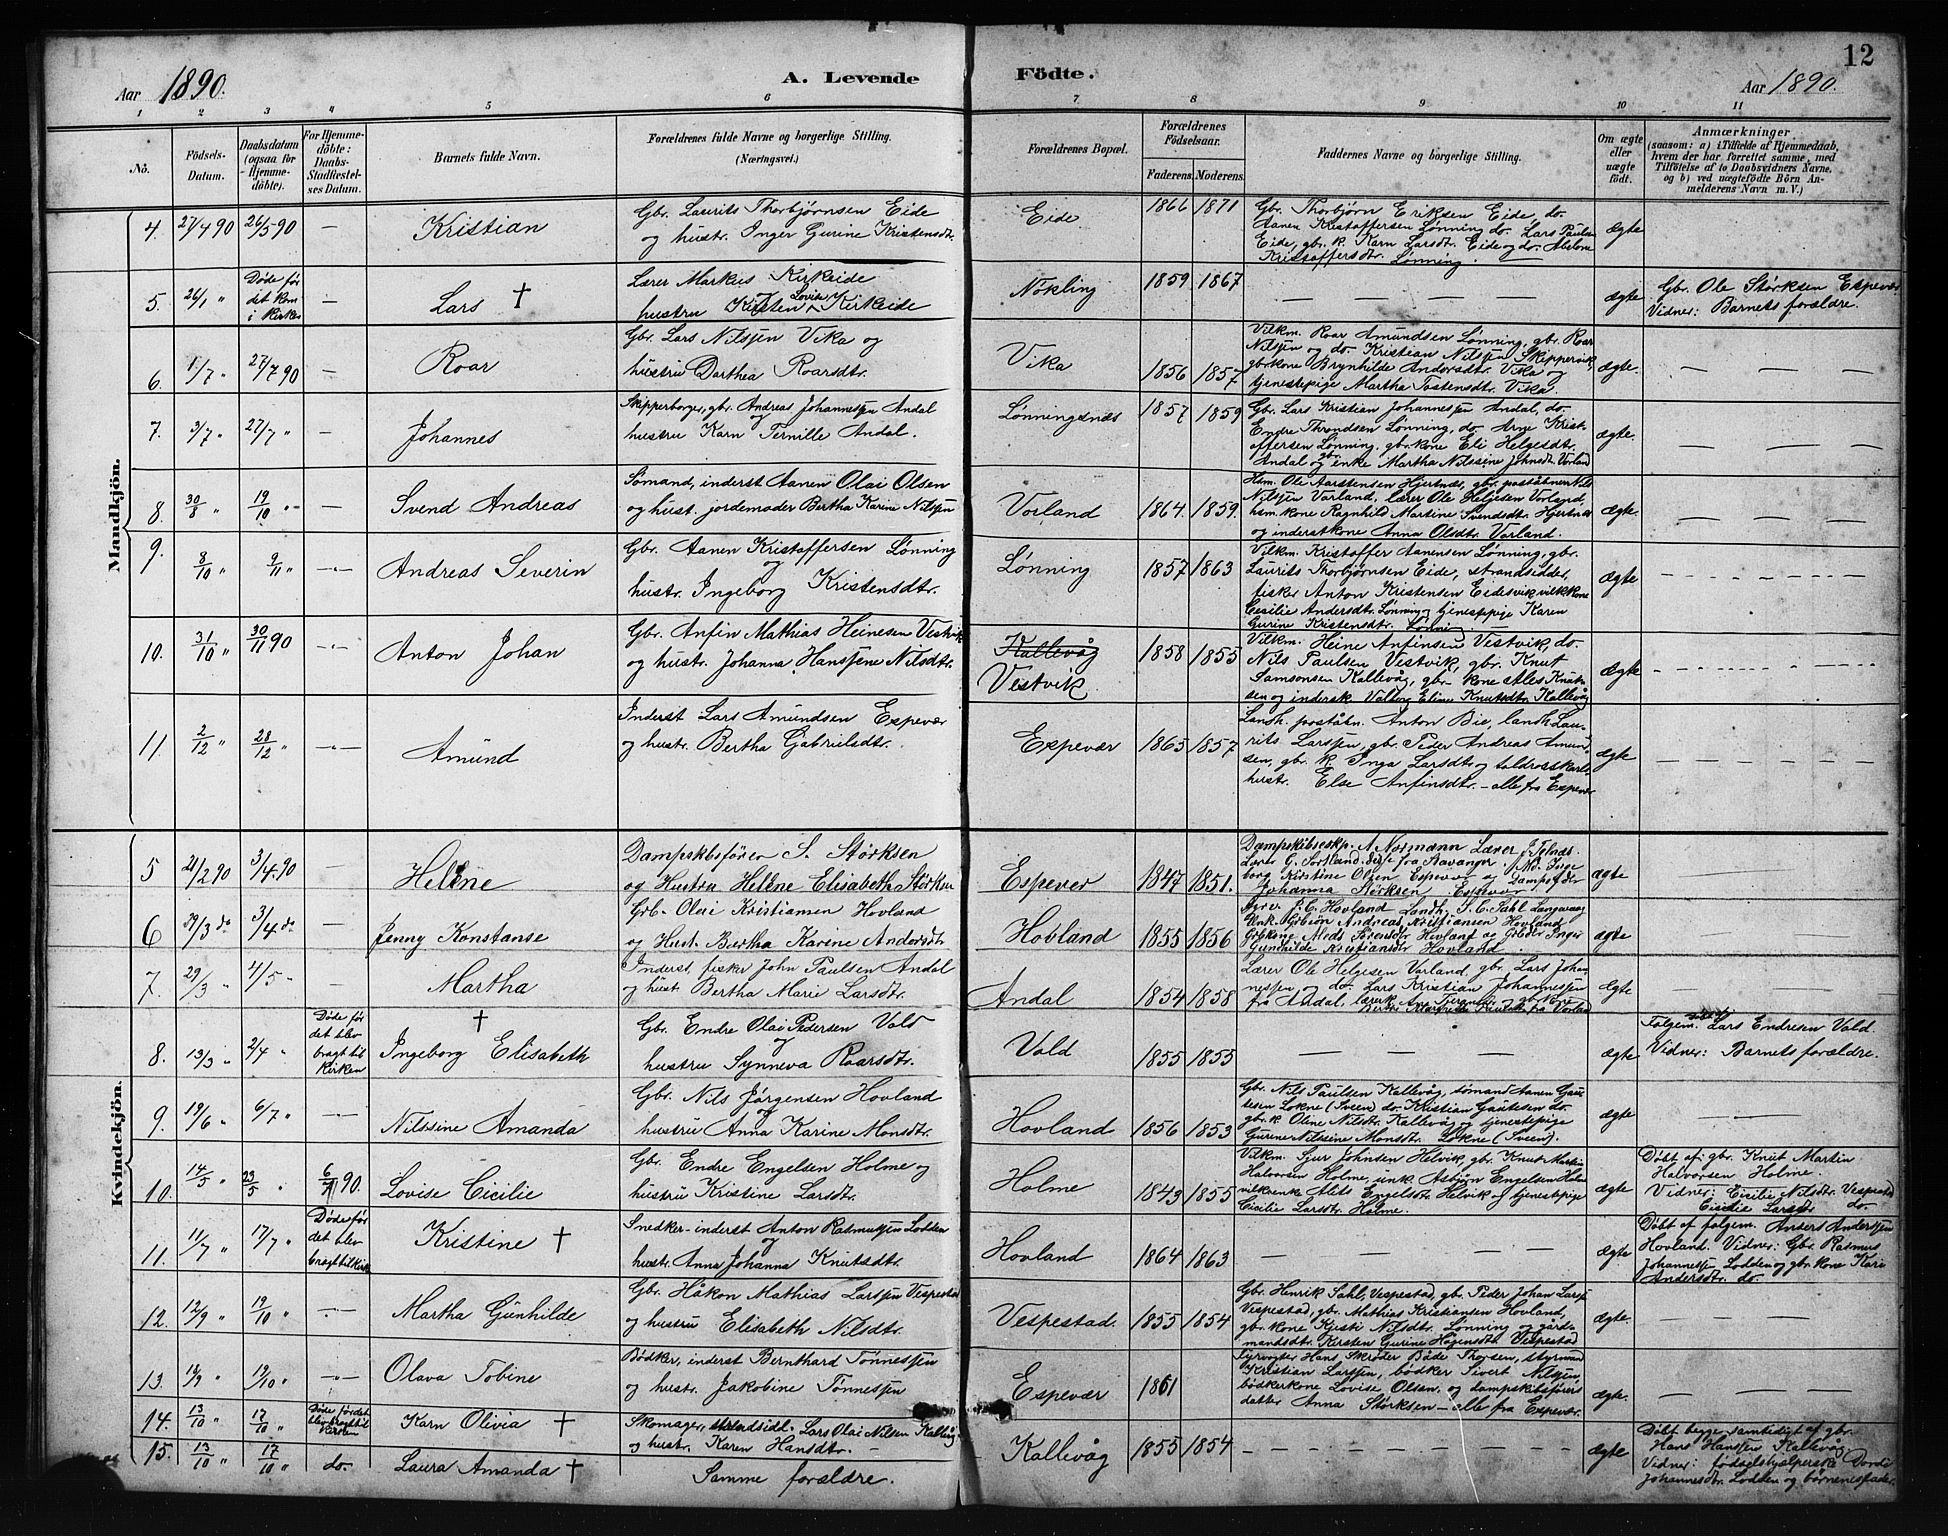 11
12
Aar 1890.
A. Levende
Födte.
Aar 1890.
1 2 3 4 5 6 7 8 9 10 11
No.
Födsels-Datum.
Daabsdatum (ogsaa for Hjemmedöbte).
For Hjemmedöbte: Daabs-Stadfæstelses Datum.
Barnets fulde Navn.
Forældrenes fulde Navne og borgerlige Stilling.
(Næringsvei.)
Forældrenes Bopæl.
Forældrenes Födselsaar.
Faderens. Moderens.
Faddernes Navne og borgerlige Stilling.
Om ægte eller uægte födt.
Anmærkninger
(saasom: a) i Tilfælde af Hjemmedaab, hvem der har forrettet samme, med Tilföielse af to Daabsvidners Navne, og b) ved uægtefödte Börn Anmelderens Navn m. V.)
Mandkjön.
4. 27/4 90 26/5 90 — Kristian
Gbr. Laurits Thorbjørnsen Eide
og hustr. Inger Gurine Kristensdtr.
Eide 1866 1871
Gbr. Thorbjørn Eriksen Eide, do.
Aanen Kristaffersen Lønning do. Lars Paulsen
Eide, gbr. k. Karn Larsdtr. Eide og do. Abelone
Kristaffersdtr. Lønning.
ægte
5. 26/1 " Døde før det kom i kirke — Lars †
Lærer Markus Kirkeide
hustru Kirsten Lovise Kirkeide
Nökling 1859 1867 — — — — — ægte
Gbr. Ole Størksen Espevær
Vidner: Barnets forældre.
6. 1/7 " 27/7 90 — Roar
Gbr. Lars Nilssen Vika og
hustru Dorthea Roarsdtr.
Vika 1856 1857
Vilkm. Roar Amundsen Lønning, gbr. Roar
Nilsen og do. Kristian Nilssen Skippervik,
gbr kone Brynhilde Andersdtr. Vika og
tjenestepige Martha Tostensdtr. Vika
ægte. — — —
7. 3/7 " 27/7 " — Johannes
Skipperborger, gbr. Andreas Johannessen Andal
og
hustru Karn Pernille Andal.
Lønningsnæs 1857 1859
Gbr. Lars Kristian Johannessen Andal, do.
Endre Throndsen Lønning, do. Arne Krist-
offersen Lønning, gbr. kone Eli Helgesdtr.
Andal og gbr. enke Martha Nilssine Johnsdtr. Vorland
ægte. — — —
8. 30/8 " 19/10 " — Svend Andreas
Sømand, inderst Aanen Olai Olsen
og hust. jordemoder Bertha Karine Nilssen
Vorland 1864. 1859.
Hsm. Ole Aarstensen Hjertnæs, gbr. poståbner Nils
Nilssen Vorland, lærer Ole Heljesen Vorland,
hsm. kone Ragnhild Martine Svendsdtr. Hjertnæs
og inderstkone Anna Olsdtr. Vorland.
ægte. — — —
9. 8/10 " 9/11 " — Andreas Severin
Gbr. Aanen Kristaffersen Lønning
og
hustr. Ingeborg Kristensdtr.
Lønning 1857 1863
Vilkm. Kristaffer Aanensen Lønning, gbr.
Laurits Thorbjørnsen Eide, strandsidder,
fisker Anton Kristensen Eidesvik, vilk kone
Cecilie Andersdtr. Lønning og tjenestepige Karen
Gurine Kristensdtr. Lønning
ægte
10. 31/10 " 30/11 90 Anton Johan
Gbr. Anfin Mathias Heinesen Vestvik
og hustr. Johanna Hanssene Nilsdtr.
Kallevåg
Vestvik 1858 1855
Vilkm. Heine Anfinsen Vestvik, do.
Nils Paulsen Vestvik, gbr. Knut
Samsonsen Kallevåg, gbr- kone Ales Knut-
sen og indersk. Valborg Eline Knutsdtr. Kallevåg
ægte
11. 2/12 " 28/12 " Amund
Inderst Lars Amundsen Espevær
og hustr. Bertha Gabrielsdtr.
Espevær 1865 1857
Landh. poståbn. Anton Bie, landh. Lau-
rits Larssen, gbr. Peder Andreas Amund-
sen, gbr. k. Inga Larsdtr og toldrosskarls
hustr. Else Anfinsdtr. – alle fra Espevær
ægte
Kvindekjön.
5 21/2 90 3/4 90 — Helene
Dampskibsfører S. Størksen
og Hustru Helene Elisabeth Størksen
Espevær 1847 1851.
Dampskibsexp. A. Normann Lærer
Lærer G. Sortland. fra Stavanger. Inge
borg Kirstine Olsen Espevær og
Johanna Størksen Espevær
ægte
6 29/3 do 3/4 do — Jenny Konstanse
Grb. Olai Kristiansen Hovland
og Hust. Bertha Karine Andersdtr
Hovland 1855 1856
P. C. Hovland Landh. S. C. Sahl Langevaag
Andreas Kristiansen Hovland
Grbkone Sørensdtr Hovland og Inger
Gunhilde Kristiansdtr Hovland
ægte
7. 29/3 " 4/5 " — Martha
Inderst, fisker John Paulsen Andal
og hust. Bertha Marie Larsdtr.
Andal 1854 1858
Lærer Ole Helgesen Vorland, gbr. Lars Johan-
nessen og do. Lars Kristian Johannessen
fra Andal, lærerk. gbr kone
fra Vorland
Egte — — —
8. 13/3 " 2/4 " Døde før det blev bragt til kirken † Ingeborg Elisabeth
Gbr. Endre Olai Pedersen Vold
og
hustru Synneva Roarsdtr.
Vold 1855 1855 — — — — ægte
Folgem. Lars Endresen Vold.
Vidner: Barnets forældre.
9. 19/6 " 6/7 " Nilssine Amanda
Gbr. Nils Jørgensen Hovland
og
hustru Anna Karine Monsdtr.
Hovland 1856 1853
Gbr. Nils Paulsen Kallevåg, sømand Aanen Gau-
tesen Lokne (Sveen) do. Kristian Gautesen do.
gbr. k. Oline Nilsdtr. Kallevåg og tjenestepige
Gurine Nilssine Monsdtr. Lokne (Sveen).
ægte
10. 14/5 " 23/5 " 6/7 90. Lovise Cicilie
Gbr. Endre Engelsen Holme og
hustru Kristine Larsdtr.
Holme 1843 1855
Vilkm. Sjur Johnsen Helvik, gbr. Knut Martin
Halvorsen Holme, unk. Asbjørn Engelsen Holme
vilkenke Alets Engelsdtr. Helvik og tjenestepige
Cicilie Larsdtr. Holme.
ægte
Døbt af: gbr. Knut Martin
Halvorsen Holme.
Vidner: Cicilie Nilsdtr. Vespestad
Cicilie Larsdtr do.
11. 11/7 " 17/7 " Døde før det blev bragt til kirke Kristine †
Snedker – inderst Anton Rasmussen Lodden
og
hustr. Anna Johanna Knutsdtr.
Hovland 1864 1863 — — — — ægte
Døbt af folgem. Anders Anderssen
Hovland. Vidner: Gbr. Rasmus
Johannessen Lodden og gbr. kone Kari
Andersdtr. do.
12. 12/9 " 19/10 " Martha Gunhilde
Gbr. Håkon Mathias Larssen Vespestad
og hustru Elisabeth Nilsdtr.
Vespestad. 1855 1854
Gbr. Henrik Sahl, Vespestad, gbr. Peder Johan Larssen
Vespestad, gbr. Mathias Kristiansen Hovland,
gbr. kone Kristi Nilsdtr. Lønning og gård-
mandsdtr. Kirsten Gurine Hågensdtr. Vespestad
ægte.
13. 19/10 " Olava Tobine
Bødker, inderst Bernthard Tönnessen
og hustr. Jakobine Tönnessen
Espevær 1861
Fyrvogter Hans Skrøder Bøde Thorsen, styrmand
Kristian Larssen, bødker Sivert Nilssen,
bødkerkone Lovise Olsen og dampskibsførers
datter Anna Størksen – alle fra Espevær.
ægte.
14. 13/10 " 17/10 " Døde før det blev bragt til kirken Karn Olivia †
Skomager, strandsidd. Lars Olai Nilsen Kallevåg
og hustr. Karen Hansdtr.
Kallevåg 1855 1854 ægte
Døbt begge samtidigt af gbr.
Hans Hanssen Kallevåg
Vidner: fødselshjælperske Dordi
Johannesdtr. Lodden og børnenes fader.
15. 13/10 17/10 " do. Laura Amanda †
Samme forældre.